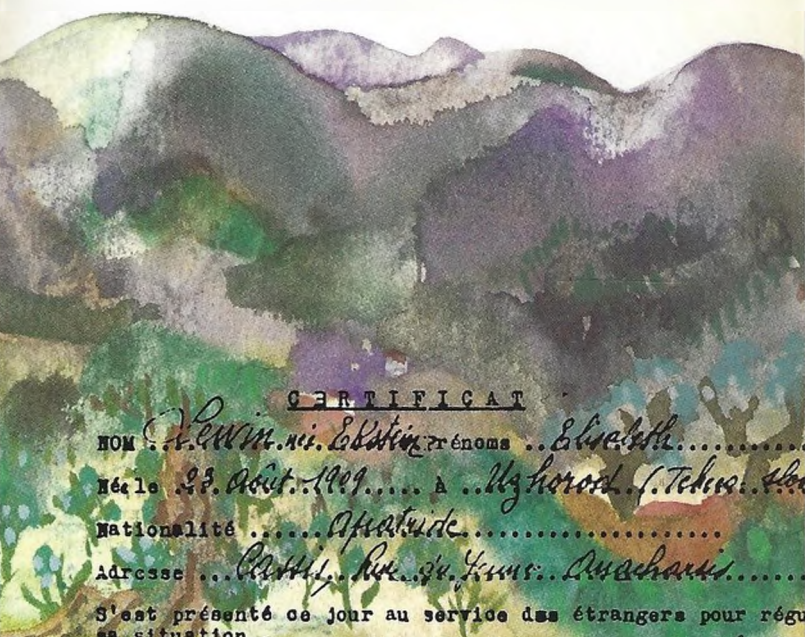 CERTIFICAT
NOM ... Lewin née Ekstein Prénoms .. Elisabeth
Née le .23. Août. 1909..... à ... Uzhorod (Tchéco. slov
Nationalité ...... Apatride
Adresse ... Cassis, Rue du Jeune Anacharsis
S'est présenté ce jour au service des étrangers pour régu
sa situation